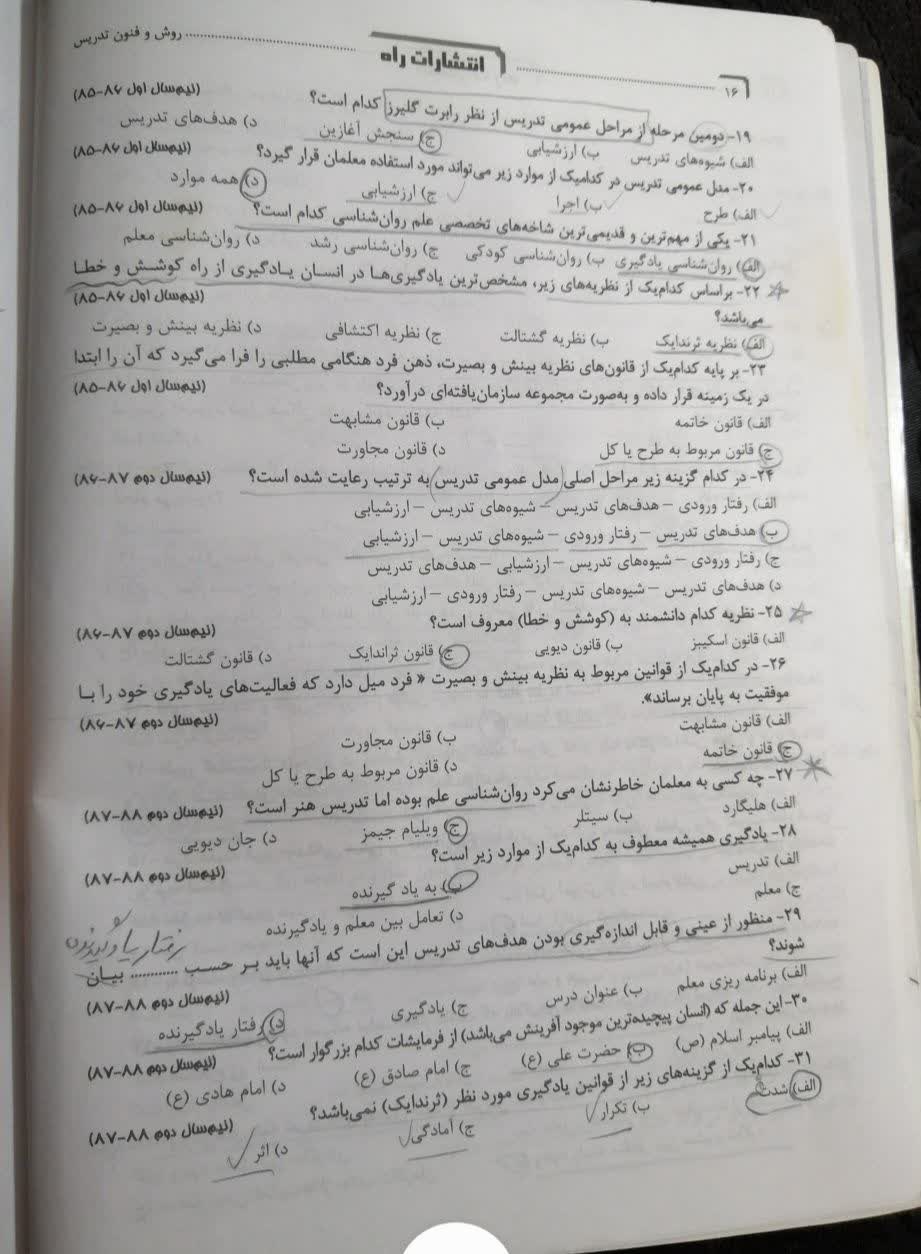 ۱۶ انتشارات راه روش و فنون تدریس
۱۹- دومین مرحله از مراحل عمومی تدریس از نظر رابرت گلیرز کدام است؟ (نیم‌سال اول ۸۶-۸۵)
الف) شیوه‌های تدریس ب) ارزشیابی ج) سنجش آغازین د) هدف‌های تدریس
۲۰- مدل عمومی تدریس در کدامیک از موارد زیر می‌تواند مورد استفاده معلمان قرار گیرد؟ (نیم‌سال اول ۸۶-۸۵)
الف) طرح ب) اجرا ج) ارزشیابی د) همه موارد
۲۱- یکی از مهم‌ترین و قدیمی‌ترین شاخه‌های تخصصی علم روان‌شناسی کدام است؟ (نیم‌سال اول ۸۶-۸۵)
الف) روان‌شناسی یادگیری ب) روان‌شناسی کودکی ج) روان‌شناسی رشد د) روان‌شناسی معلم
۲۲- براساس کدام‌یک از نظریه‌های زیر، مشخص‌ترین یادگیری‌ها در انسان یادگیری از راه کوشش و خطا
می‌باشد؟ (نیم‌سال اول ۸۶-۸۵)
الف) نظریه ثرندایک ب) نظریه گشتالت ج) نظریه اکتشافی د) نظریه بینش و بصیرت
۲۳- بر پایه کدام‌یک از قانون‌های نظریه بینش و بصیرت، ذهن فرد هنگامی مطلبی را فرا می‌گیرد که آن را ابتدا
در یک زمینه قرار داده و به‌صورت مجموعه سازمان‌یافته‌ای درآورد؟ (نیم‌سال اول ۸۶-۸۵)
الف) قانون خاتمه ب) قانون مشابهت
ج) قانون مربوط به طرح یا کل د) قانون مجاورت
۲۴- در کدام گزینه زیر مراحل اصلی (مدل عمومی تدریس) به ترتیب رعایت شده است؟ (نیم‌سال دوم ۸۷-۸۶)
الف) رفتار ورودی – هدف‌های تدریس – شیوه‌های تدریس – ارزشیابی
ب) هدف‌های تدریس – رفتار ورودی – شیوه‌های تدریس – ارزشیابی
ج) رفتار ورودی – شیوه‌های تدریس – ارزشیابی – هدف‌های تدریس
د) هدف‌های تدریس – شیوه‌های تدریس – رفتار ورودی – ارزشیابی
۲۵- نظریه کدام دانشمند به (کوشش و خطا) معروف است؟ (نیم‌سال دوم ۸۷-۸۶)
الف) قانون اسکینز ب) قانون دیویی ج) قانون ثراندایک د) قانون گشتالت
۲۶- در کدام‌یک از قوانین مربوط به نظریه بینش و بصیرت « فرد میل دارد که فعالیت‌های یادگیری خود را با
موفقیت به پایان برساند». (نیم‌سال دوم ۸۷-۸۶)
الف) قانون مشابهت ب) قانون مجاورت
ج) قانون خاتمه د) قانون مربوط به طرح یا کل
۲۷- چه کسی به معلمان خاطرنشان می‌کرد روان‌شناسی علم بوده اما تدریس هنر است؟ (نیم‌سال دوم ۸۸-۸۷)
الف) هلیگارد ب) سیتلر ج) ویلیام جیمز د) جان دیویی
۲۸- یادگیری همیشه معطوف به کدام‌یک از موارد زیر است؟ (نیم‌سال دوم ۸۸-۸۷)
الف) تدریس ب) به یاد گیرنده
ج) معلم د) تعامل بین معلم و یادگیرنده
رفتار یادگیرنده
۲۹- منظور از عینی و قابل اندازه‌گیری بودن هدف‌های تدریس این است که آنها باید بر حسب ............ بیان
شوند؟ (نیم‌سال دوم ۸۸-۸۷)
الف) برنامه ریزی معلم ب) عنوان درس ج) یادگیری د) رفتار یادگیرنده
۳۰- این جمله که (انسان پیچیده‌ترین موجود آفرینش می‌باشد) از فرمایشات کدام بزرگوار است؟ (نیم‌سال دوم ۸۸-۸۷)
الف) پیامبر اسلام (ص) ب) حضرت علی (ع) ج) امام صادق (ع) د) امام هادی (ع)
۳۱- کدام‌یک از گزینه‌های زیر از قوانین یادگیری مورد نظر (ثرندایک) نمی‌باشد؟ (نیم‌سال دوم ۸۸-۸۷)
الف) شدت ب) تکرار ج) آمادگی د) اثر